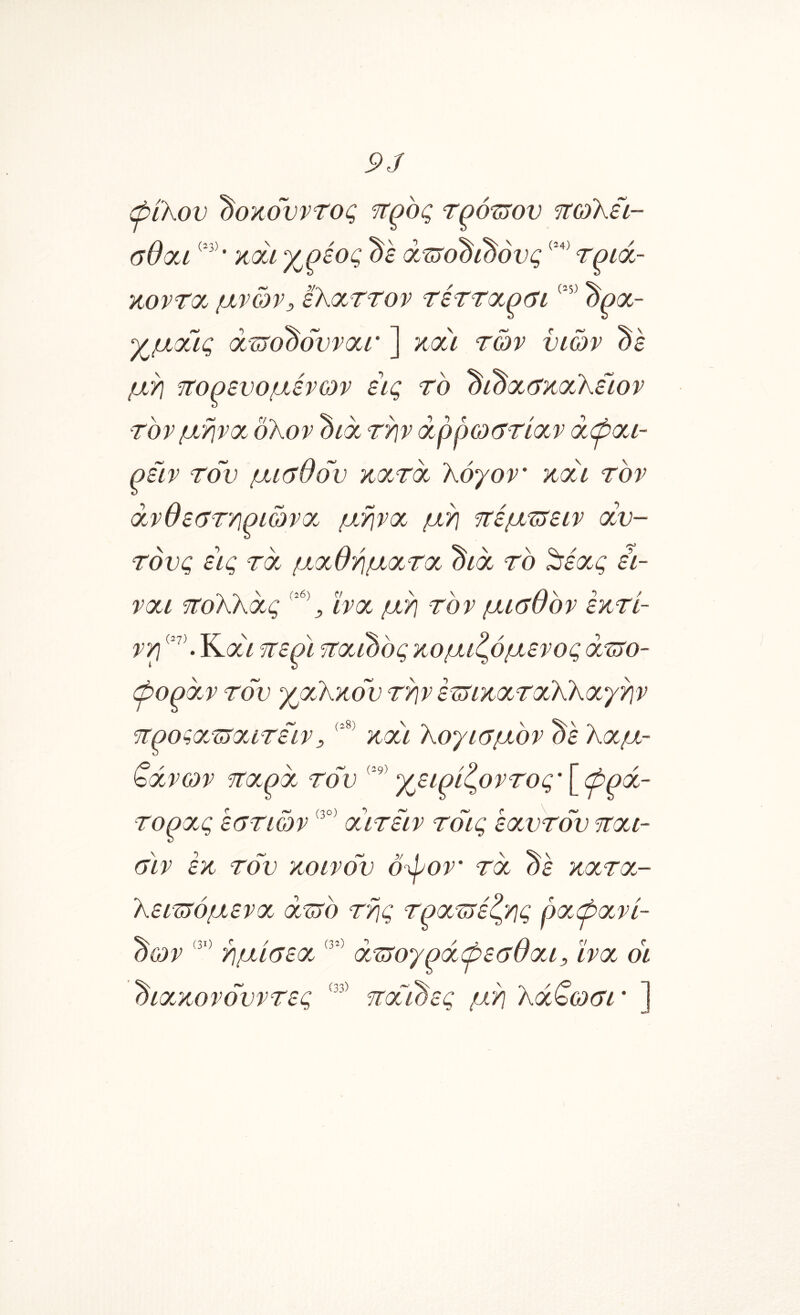 93
φίλου δοκοῦντος πρὸς τρόπον πωλεῖ-
σθαι (23)· καὶ χρέος δὲ ἀποδιδοὺς (24) τριά-
κοντα μνῶν, ἔλαττον τέτταρσι (25) δρα-
χμαῖς ἀποδοῦναι· ] καὶ τῶν υἱῶν δὲ
μὴ πορευομένων εἰς τὸ διδασκαλεῖον
τὸν μῆνα ὅλον διὰ τὴν ἀῤῥωστίαν ἀφαι-
ρεῖν τοῦ μισθοῦ κατὰ λόγον· καὶ τὸν
ἀνθεστηριῶνα μῆνα μὴ πέμπειν αὐ-
τοὺς εἰς τὰ μαθήματα διὰ τὸ θέας εἶ-
ναι πολλὰς (26), ἵνα μὴ τὸν μισθὸν ἐκτί-
νη (27). Καὶ περὶ παιδὸς κομιζόμενος ἀπο-
φορὰν τοῦ χαλκοῦ τὴν ἐπικαταλλαγὴν
προςαπαιτεῖν, (28) καὶ λογισμὸν δὲ λαμ-
βάνων παρὰ τοῦ (29) χειρίζοντος· [ φρά-
τορας ἑστιῶν (30) αἰτεῖν τοῖς ἑαυτοῦ παι-
σὶν ἐκ τοῦ κοινοῦ ὄψον· τὰ δὲ κατα-
λειπόμενα ἀπὸ τῆς τραπέζης ῥαφανί-
δων (31) ἡμίσεα (32) ἀπογράφεσθαι, ἵνα οἱ
διακονοῦντες (33) παῖδες μὴ λάβωσι· ]